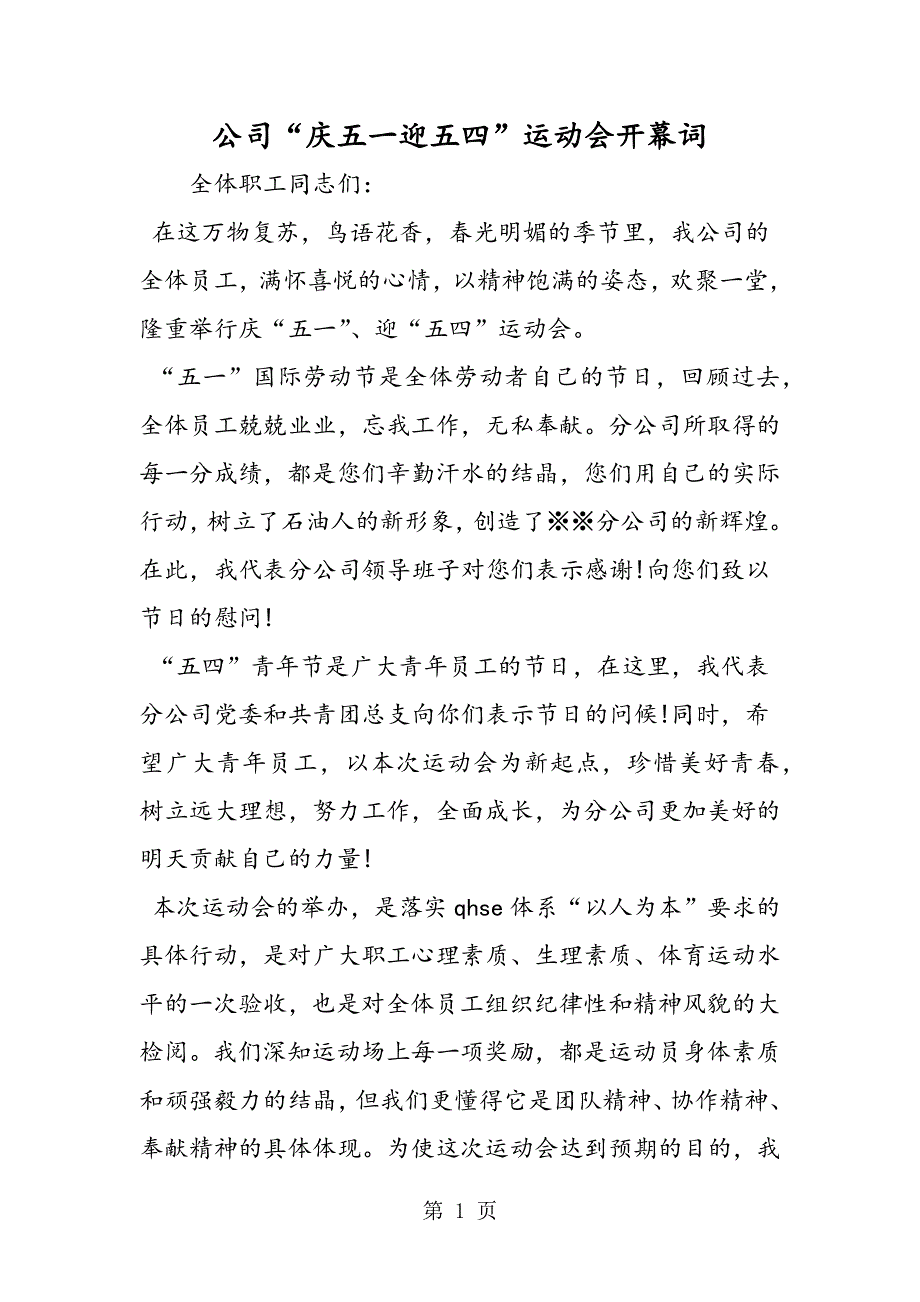 公司“庆五一迎五四”运动会开幕词
全体职工同志们：
在这万物复苏，鸟语花香，春光明媚的季节里，我公司的
全体员工，满怀喜悦的心情，以精神饱满的姿态，欢聚一堂，
隆重举行庆“五一”、迎“五四”运动会。
“五一”国际劳动节是全体劳动者自己的节日，回顾过去，
全体员工兢兢业业，忘我工作，无私奉献。分公司所取得的
每一分成绩，都是您们辛勤汗水的结晶，您们用自己的实际
行动，树立了石油人的新形象，创造了※※分公司的新辉煌。
在此，我代表分公司领导班子对您们表示感谢!向您们致以
节日的慰问!
“五四”青年节是广大青年员工的节日，在这里，我代表
分公司党委和共青团总支向你们表示节日的问候!同时，希
望广大青年员工，以本次运动会为新起点，珍惜美好青春，
树立远大理想，努力工作，全面成长，为分公司更加美好的
明天贡献自己的力量!
本次运动会的举办，是落实qhse体系“以人为本”要求的
具体行动，是对广大职工心理素质、生理素质、体育运动水
平的一次验收，也是对全体员工组织纪律性和精神风貌的大
检阅。我们深知运动场上每一项奖励，都是运动员身体素质
和顽强毅力的结晶，但我们更懂得它是团队精神、协作精神、
奉献精神的具体体现。为使这次运动会达到预期的目的，我
第 1 页